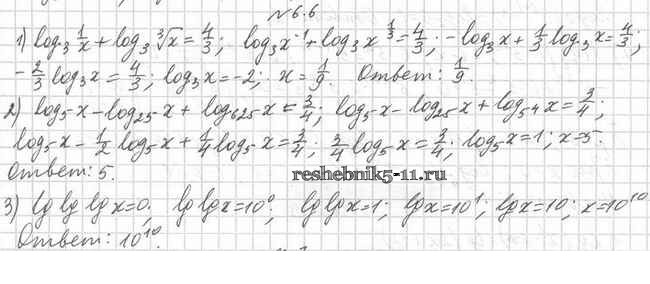 №6.6
1) log₃ 1/x + log₃ ∛x = 4/3; log₃x⁻¹ + log₃x^(1/3) = 4/3; -log₃x + 1/3 log₃x = 4/3;
-2/3 log₃x = 4/3; log₃x = -2; x = 1/9. Ответ: 1/9.
2) log₅x - log₂₅x + log₆₂₅x = 3/4; log₅x - log₂₅x + log₅4x = 3/4;
log₅x - 1/2 log₅x + 1/4 log₅x = 3/4; 3/4 log₅x = 3/4; log₅x = 1; x = 5.
Ответ: 5.
reshebnik5-11.ru
3) lg lg lg x = 0; lg lg x = 10⁰; lg lg x = 1; lg x = 10¹; lg x = 10; x = 10¹⁰
Ответ: 10¹⁰.